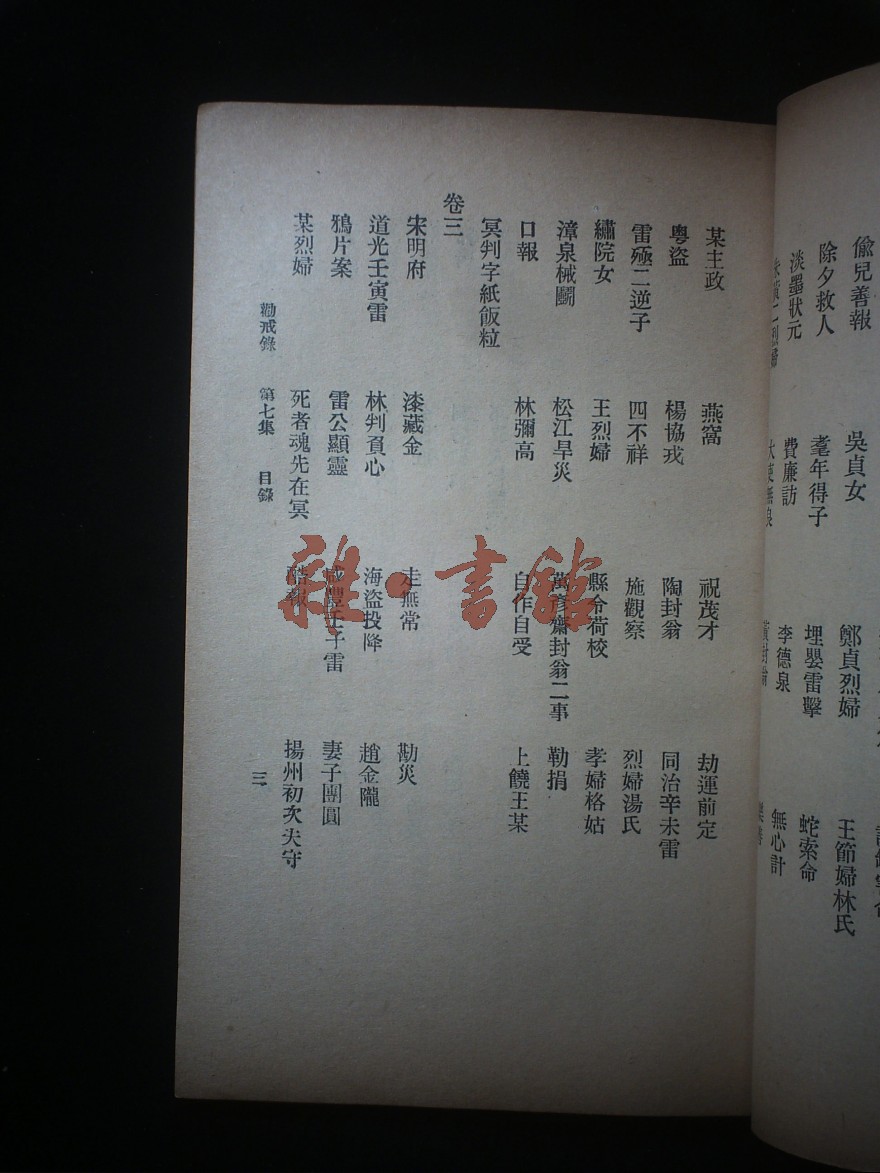 偸兒善報　吳貞女
除夕救人　耄年得子　鄭貞烈婦　王節婦林氏
淡墨狀元　費廉訪　埋嬰雷擊　蛇索命
李德泉　無心計
某主政　燕窩　祝茂才　劫運前定
粵盜　楊協戎　陶封翁　同治辛未雷
雷殛二逆子　四不祥　施觀察　烈婦湯氏
繡院女　王烈婦　縣令荷校　孝婦格姑
漳泉械鬭　松江旱災　萬彥齋封翁二事　勒捐
口報　林彌高　自作自受　上饒王某
冥判字紙飯粒
卷三
宋明府　漆藏金　走無常　勘災
道光壬寅雷　林判負心　海盜投降　趙金隴
鴉片案　雷公顯靈　咸豐壬子雷　妻子團圓
某烈婦　死者魂先在冥　酷報　揚州初次失守
勸戒錄　第七集　目錄　三
雜·書館